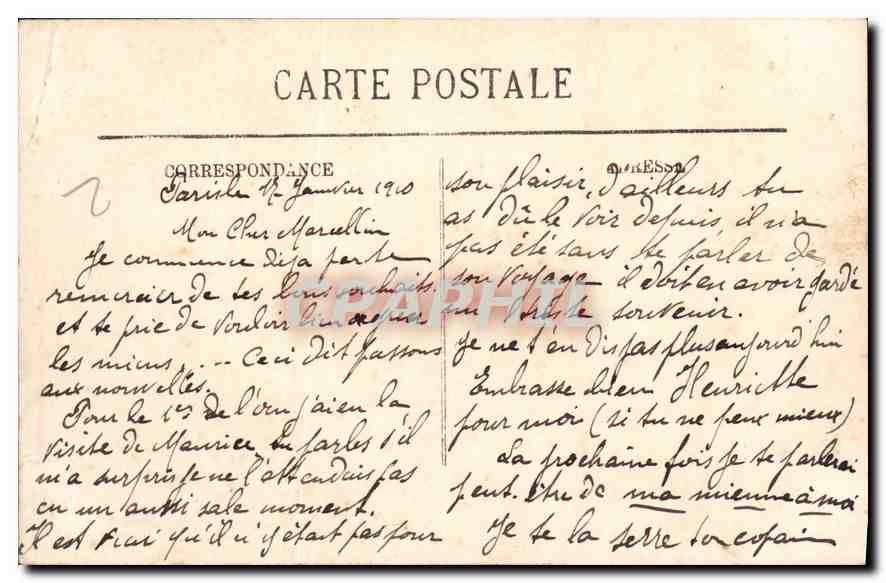 CARTE POSTALE
CORRESPONDANCE
Paris le 12 Janvier 1910
Mon Cher Marcellin
Je commence déjà par te
remercier de tes bons souhaits
et te prie de vouloir bien
les miens ... Ceci dit passons
aux nouvelles.
Pour le 1er de l'an j'ai eu la
visite de Maurice tu parles s'il
m'a surpris je ne l'attendais pas
en un aussi sale moment.
Il est vrai qu'il n'y était pas pour
ADRESSE
son plaisir, d'ailleurs tu
as dû le voir depuis, il n'a
pas été sans te parler de
son voyage il doit en avoir gardé
un triste souvenir.
Je ne t'en dis pas plus aujourd'hui
Embrasse bien Henriette
pour moi (si tu ne peux mieux)
La prochaine fois je te parlerai
peut-être de ma mienne à moi
Je te la serre ton copain
CPAPHIL